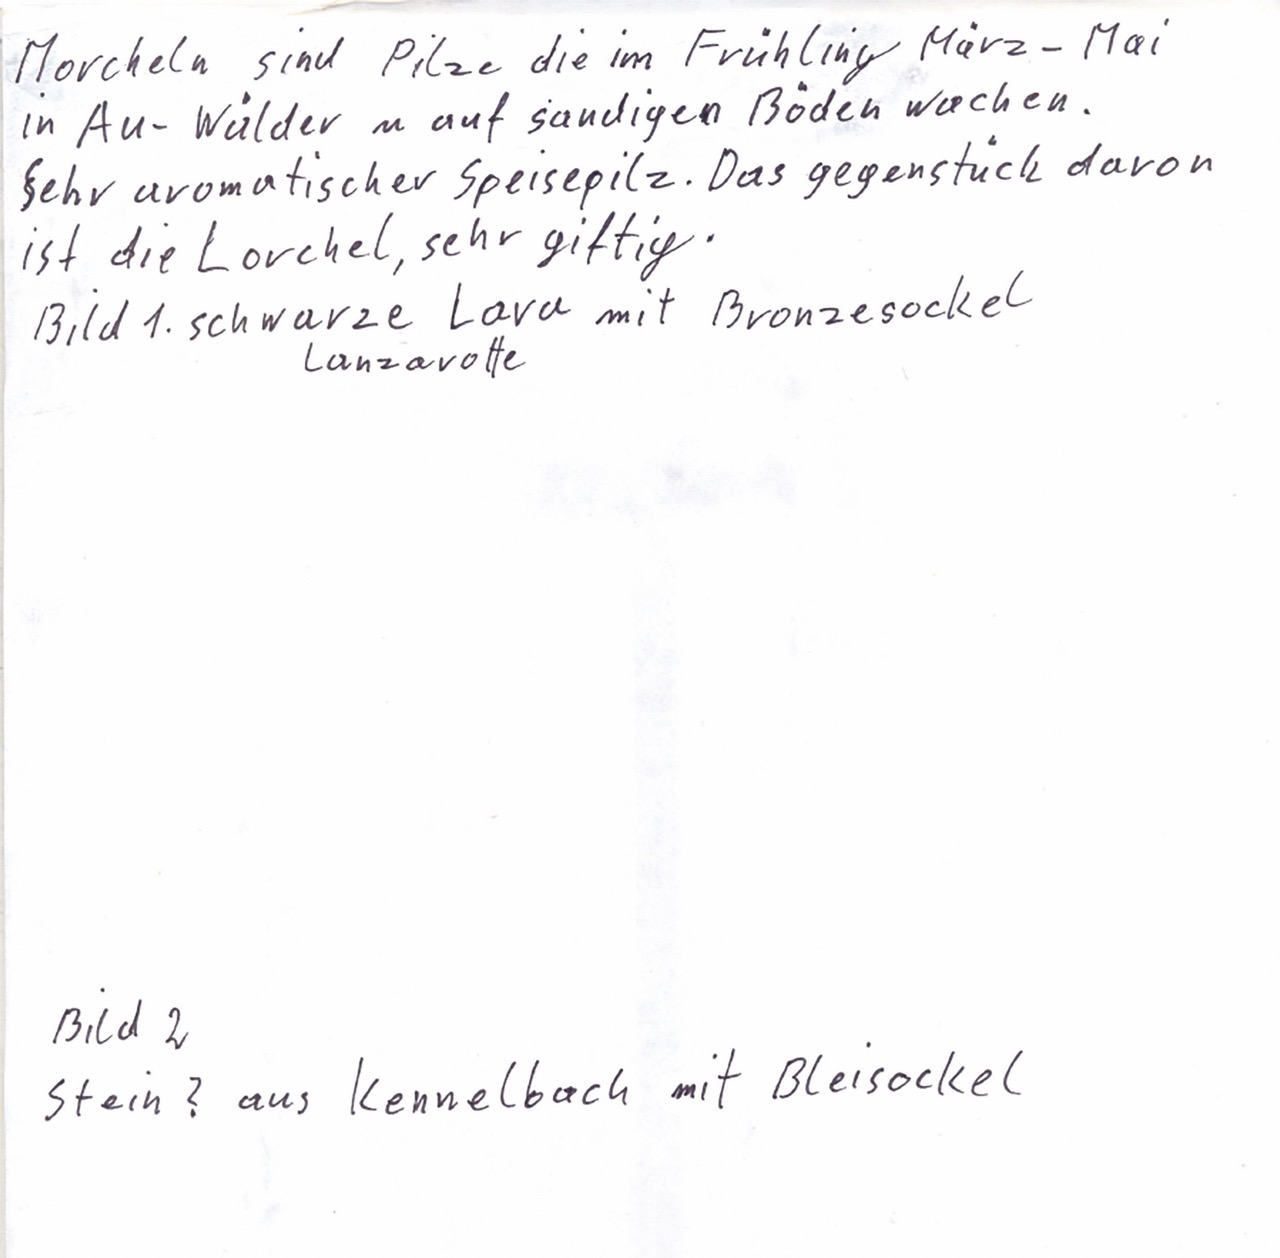 Morcheln sind Pilze die im Frühling März - Mai
in Au- Wälder u auf sandigen Böden wachen.
Sehr aromatischer Speisepilz. Das gegenstück davon
ist die Lorchel, sehr giftig.
Bild 1. schwarze Lava mit Bronzesockel
Lanzarotte
Bild 2
Stein? aus Kennelbach mit Bleisockel